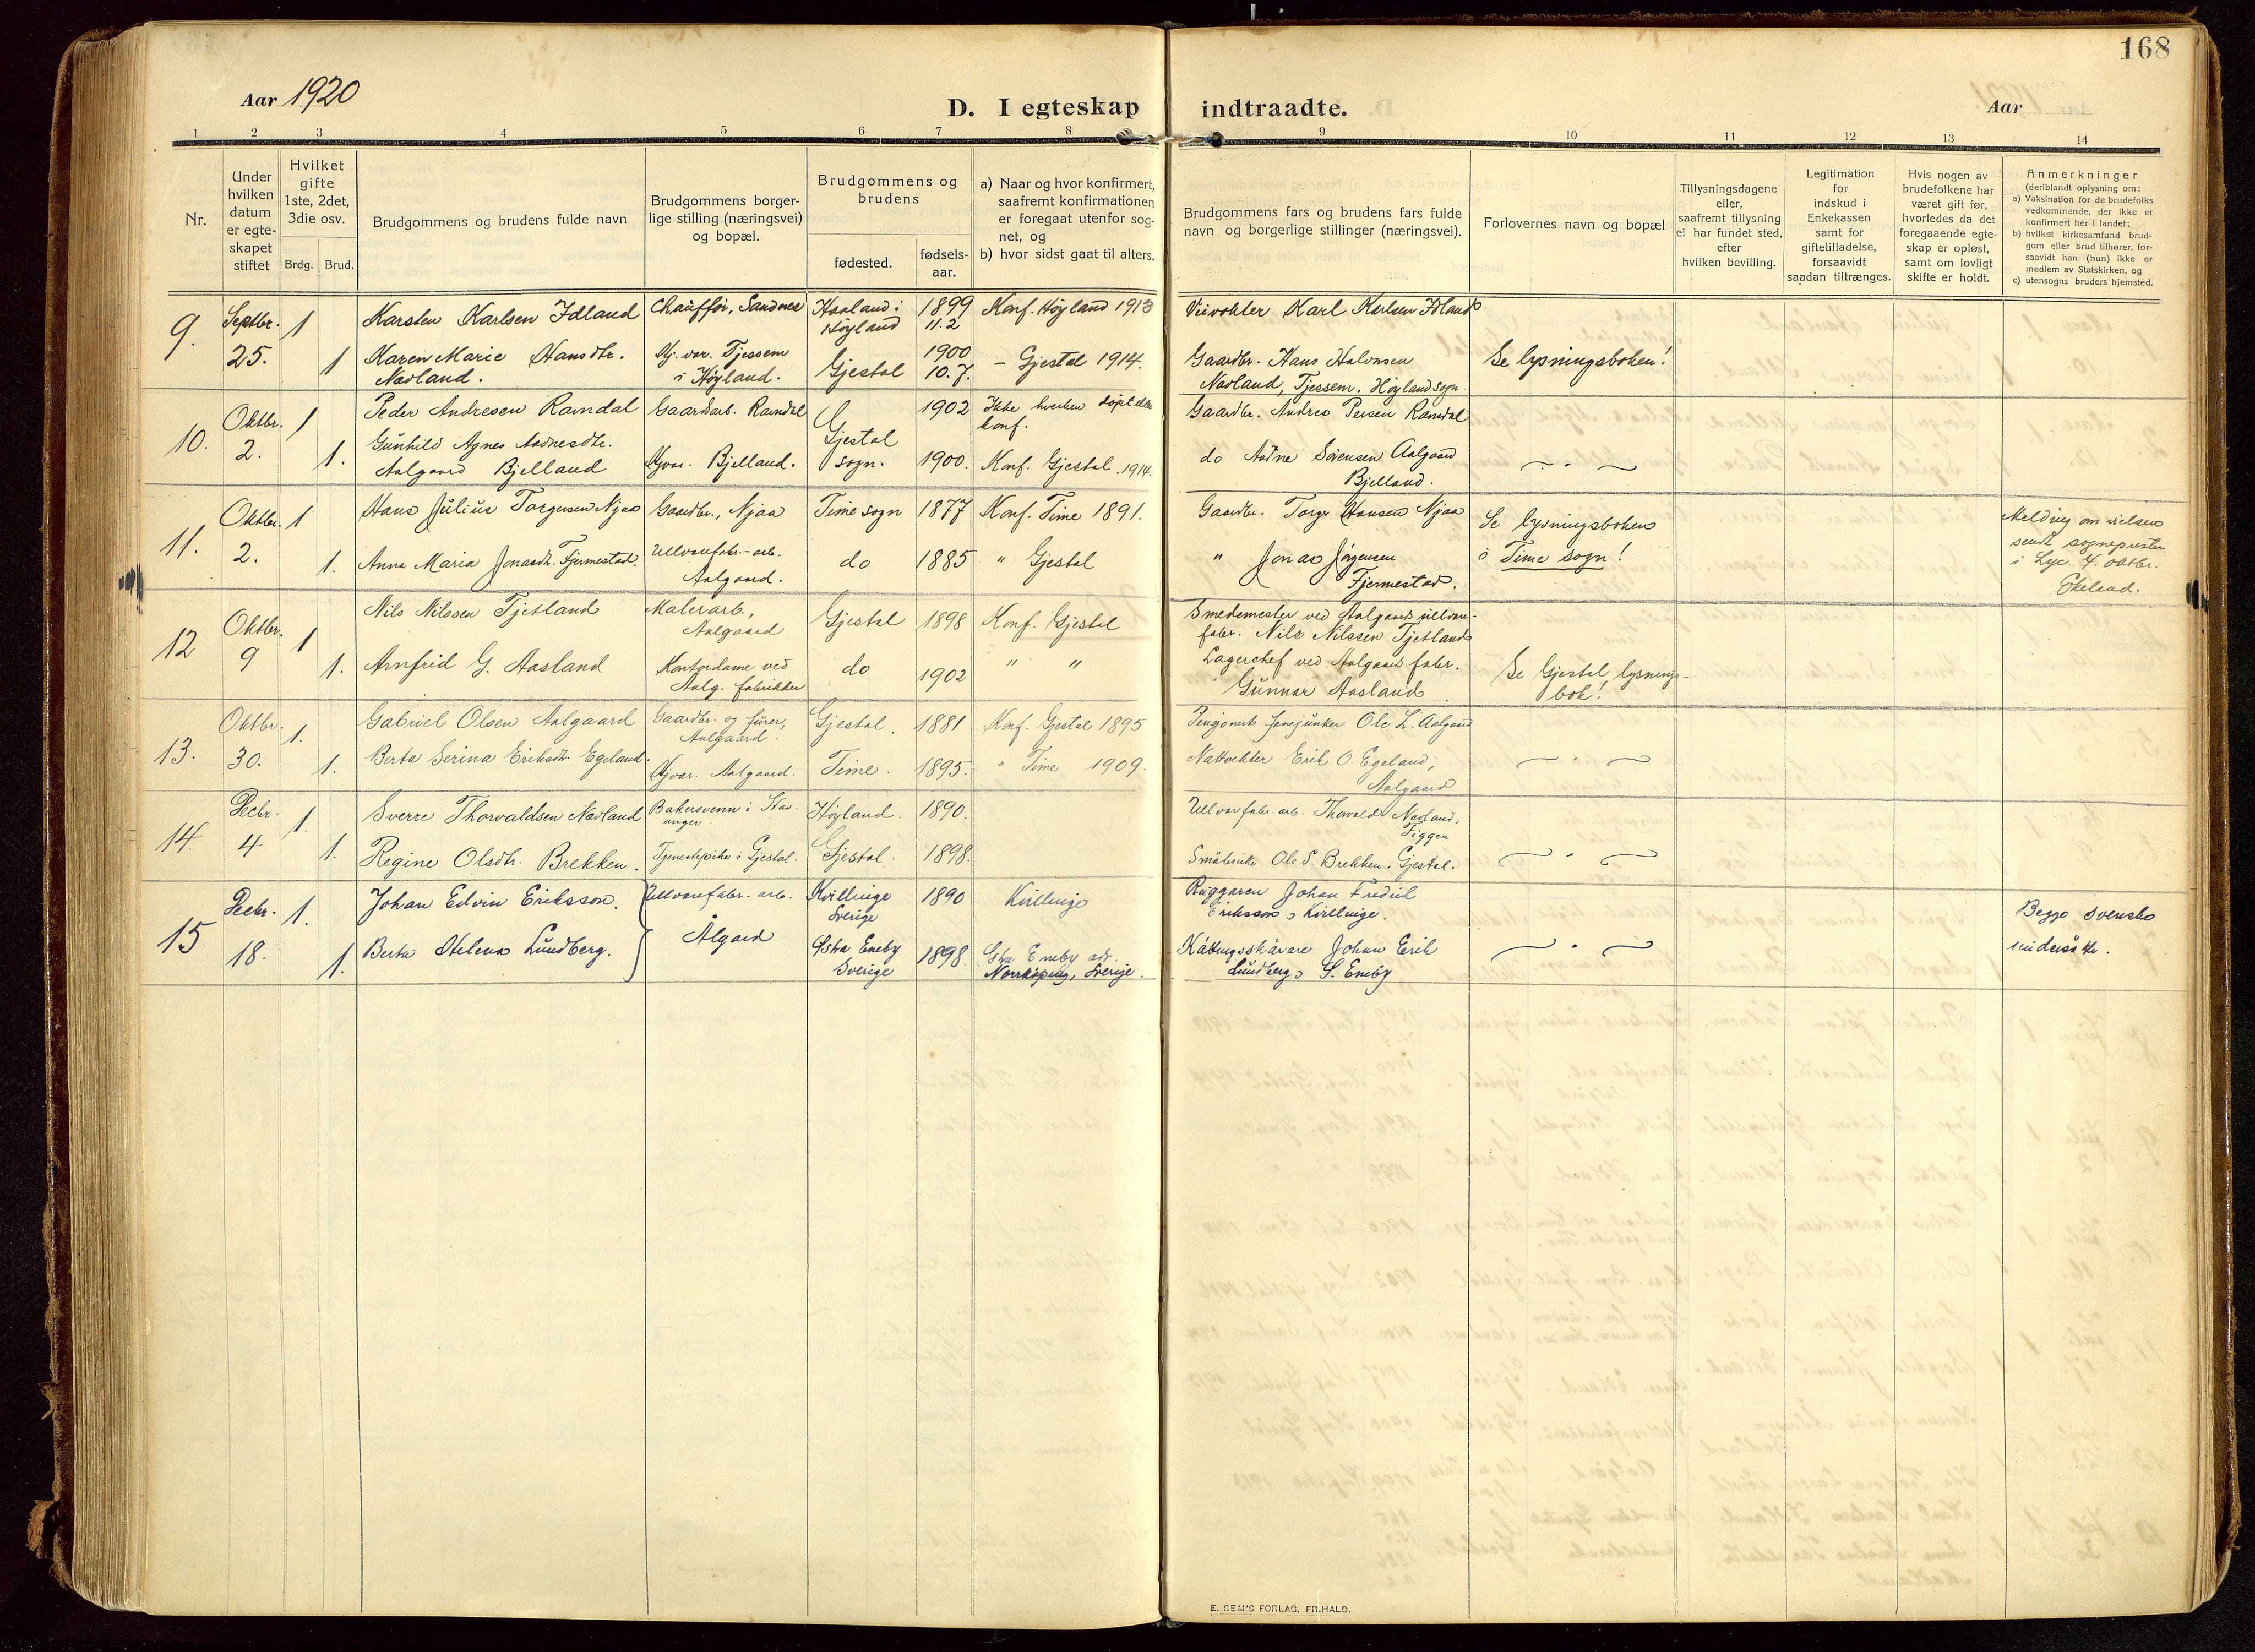 168
Aar 1920
D. I egteskap indtraadte.
Aar
1 2 3 4 5 6 7 8 9 10 11 12 13 14
Nr.
Under
hvilken
datum
er egte-
skapet
stiftet
Hvilket
gifte
1ste, 2det,
3die osv.
Brdg. Brud.
Brudgommens og brudens fulde navn
Brudgommens borger-
lige stilling (næringsvei)
og bopæl.
Brudgommens og
brudens
fødested.
fødsels-
aar.
a) Naar og hvor konfirmert,
saafremt konfirmationen
er foregaat utenfor sog-
net, og
b) hvor sidst gaat til alters.
Brudgommens fars og brudens fars fulde
navn og borgerlige stillinger (næringsvei).
Forlovernes navn og bopæl
Tillysningsdagene
eller,
saafremt tillysning
ei har fundet sted,
efter
hvilken bevilling.
Legitimation
for
indskud i
Enkekassen
samt for
giftetilladelse,
forsaavidt
saadan tiltrænges.
Hvis nogen av
brudefolkene har
været gift før,
hvorledes da det
foregaaende egte-
skap er opløst,
samt om lovligt
skifte er holdt.
Anmerkninger
(deriblandt oplysning om:
a) Vaksination for de brudefolks
vedkommende, der ikke er
konfirmert her i landet;
b) hvilket kirkesamfund brud-
gom eller brud tilhører, for-
saavidt han (hun) ikke er
medlem av Statskirken, og
c) utensogns bruders hjemsted.
9. Septbr. 25. 1
Karsten Karlsen Idland
Chauffør, Sandnes
Haaland i
Høyland
1899
11.2
Konf. Høyland 1913
Veivokter Karl Karlsen Idland
1
Karen Marie Hansdtr.
Navland.
Hj. vær. Tjessem
i Høyland.
Gjestal
1900
10.7.
– Gjestal 1914.
Gaardbr. Hans Halvorsen
Navland, Tjessem, Høyland sogn
Se lysningsboken!
10. Oktbr. 2. 1
Peder Andresen Ramdal
Gaardarb. Ramdal
Gjestal
sogn.
1902
Ikke hverken døpt eller
konf.
Gaardbr. Andreas Persen Ramdal
1.
Gunhild Agnes Aadnesdtr.
Aalgaard Bjelland
Hjvær. Bjelland.
1900.
Konf. Gjestal. 1914.
do Aadne Sørensen Aalgaard
Bjelland.
— " —
11. Oktbr. 2. 1
Hans Julius Torgersen Njaa
Gaardbr., Njaa
Time sogn
1877
Konf. Time 1891.
Gaardbr. Torger Hansen Njaa
Se lysningsboken
i Time sogn!
Melding om vielsen
sendt sognepresten
i Lye 4. oktbr.
1.
Anna Maria Jonasdt. Fjermestad.
Uldvarefabr.-arb.
Aalgaard.
do
1885
" Gjestal
" Jonas Jørgensen
Fjermestad.
12 Oktbr. 9 1
Nils Nilssen Tjetland
Malerarb,
Aalgaard
Gjestal
1898
Konf. Gjestal
Smedemester ved Aalgaards uldvare-
fabr. Nils Nilssen Tjetland
1.
Arnfrid G. Aasland
Kontordame ved
Aalg. fabrikker
do
1902
" "
Lagerchef ved Aalgaards fabr.
Gunnar Aasland
Se Gjestal lysnings-
bok!
13. Oktbr. 30. 1.
Gabriel Olsen Aalgaard
Gaardbr. og furer,
Aalgaard.
Gjestal.
1881
Konf. Gjestal 1895
Pensjonert fanejunker Ole L. Aalgaard
1.
Berta Serina Eriksdtr. Egeland.
Hjvær. Aalgaard.
Time.
1895.
" Time 1909.
Nattvekter Erik O. Egeland,
Aalgaard
— " —
14. Decbr. 4 1.
Sverre Thorvaldsen Navland
Bakersvenn i Stav-
anger
Høyland.
1890.
Uldvarefabr. arb. Thorvald Navland,
Figgen
1.
Regine Olsdtr. Brekken.
Tjenestepike i Gjestal.
Gjestal.
1898.
Småbruker Ole S. Brekken, Gjestal.
— " —
15 Decbr. 18. 1.
Johan Edvin Eriksson.
Uldvarefabr. arb.
Ålgård
Kvillinge
Sverige
1890
Kvillinge
Ruggaren Johan Fredrik
Eriksson, Kvillinge.
1.
Berta Helena Lundberg.
Östra Eneby
Sverige
1898.
Östra Eneby
Norrköping, Sverige.
Johan Erik
Lundberg, Ö. Eneby
— " —
Begge svenske
undersåtter.
E. SEM'S FORLAG, FR.HALD.